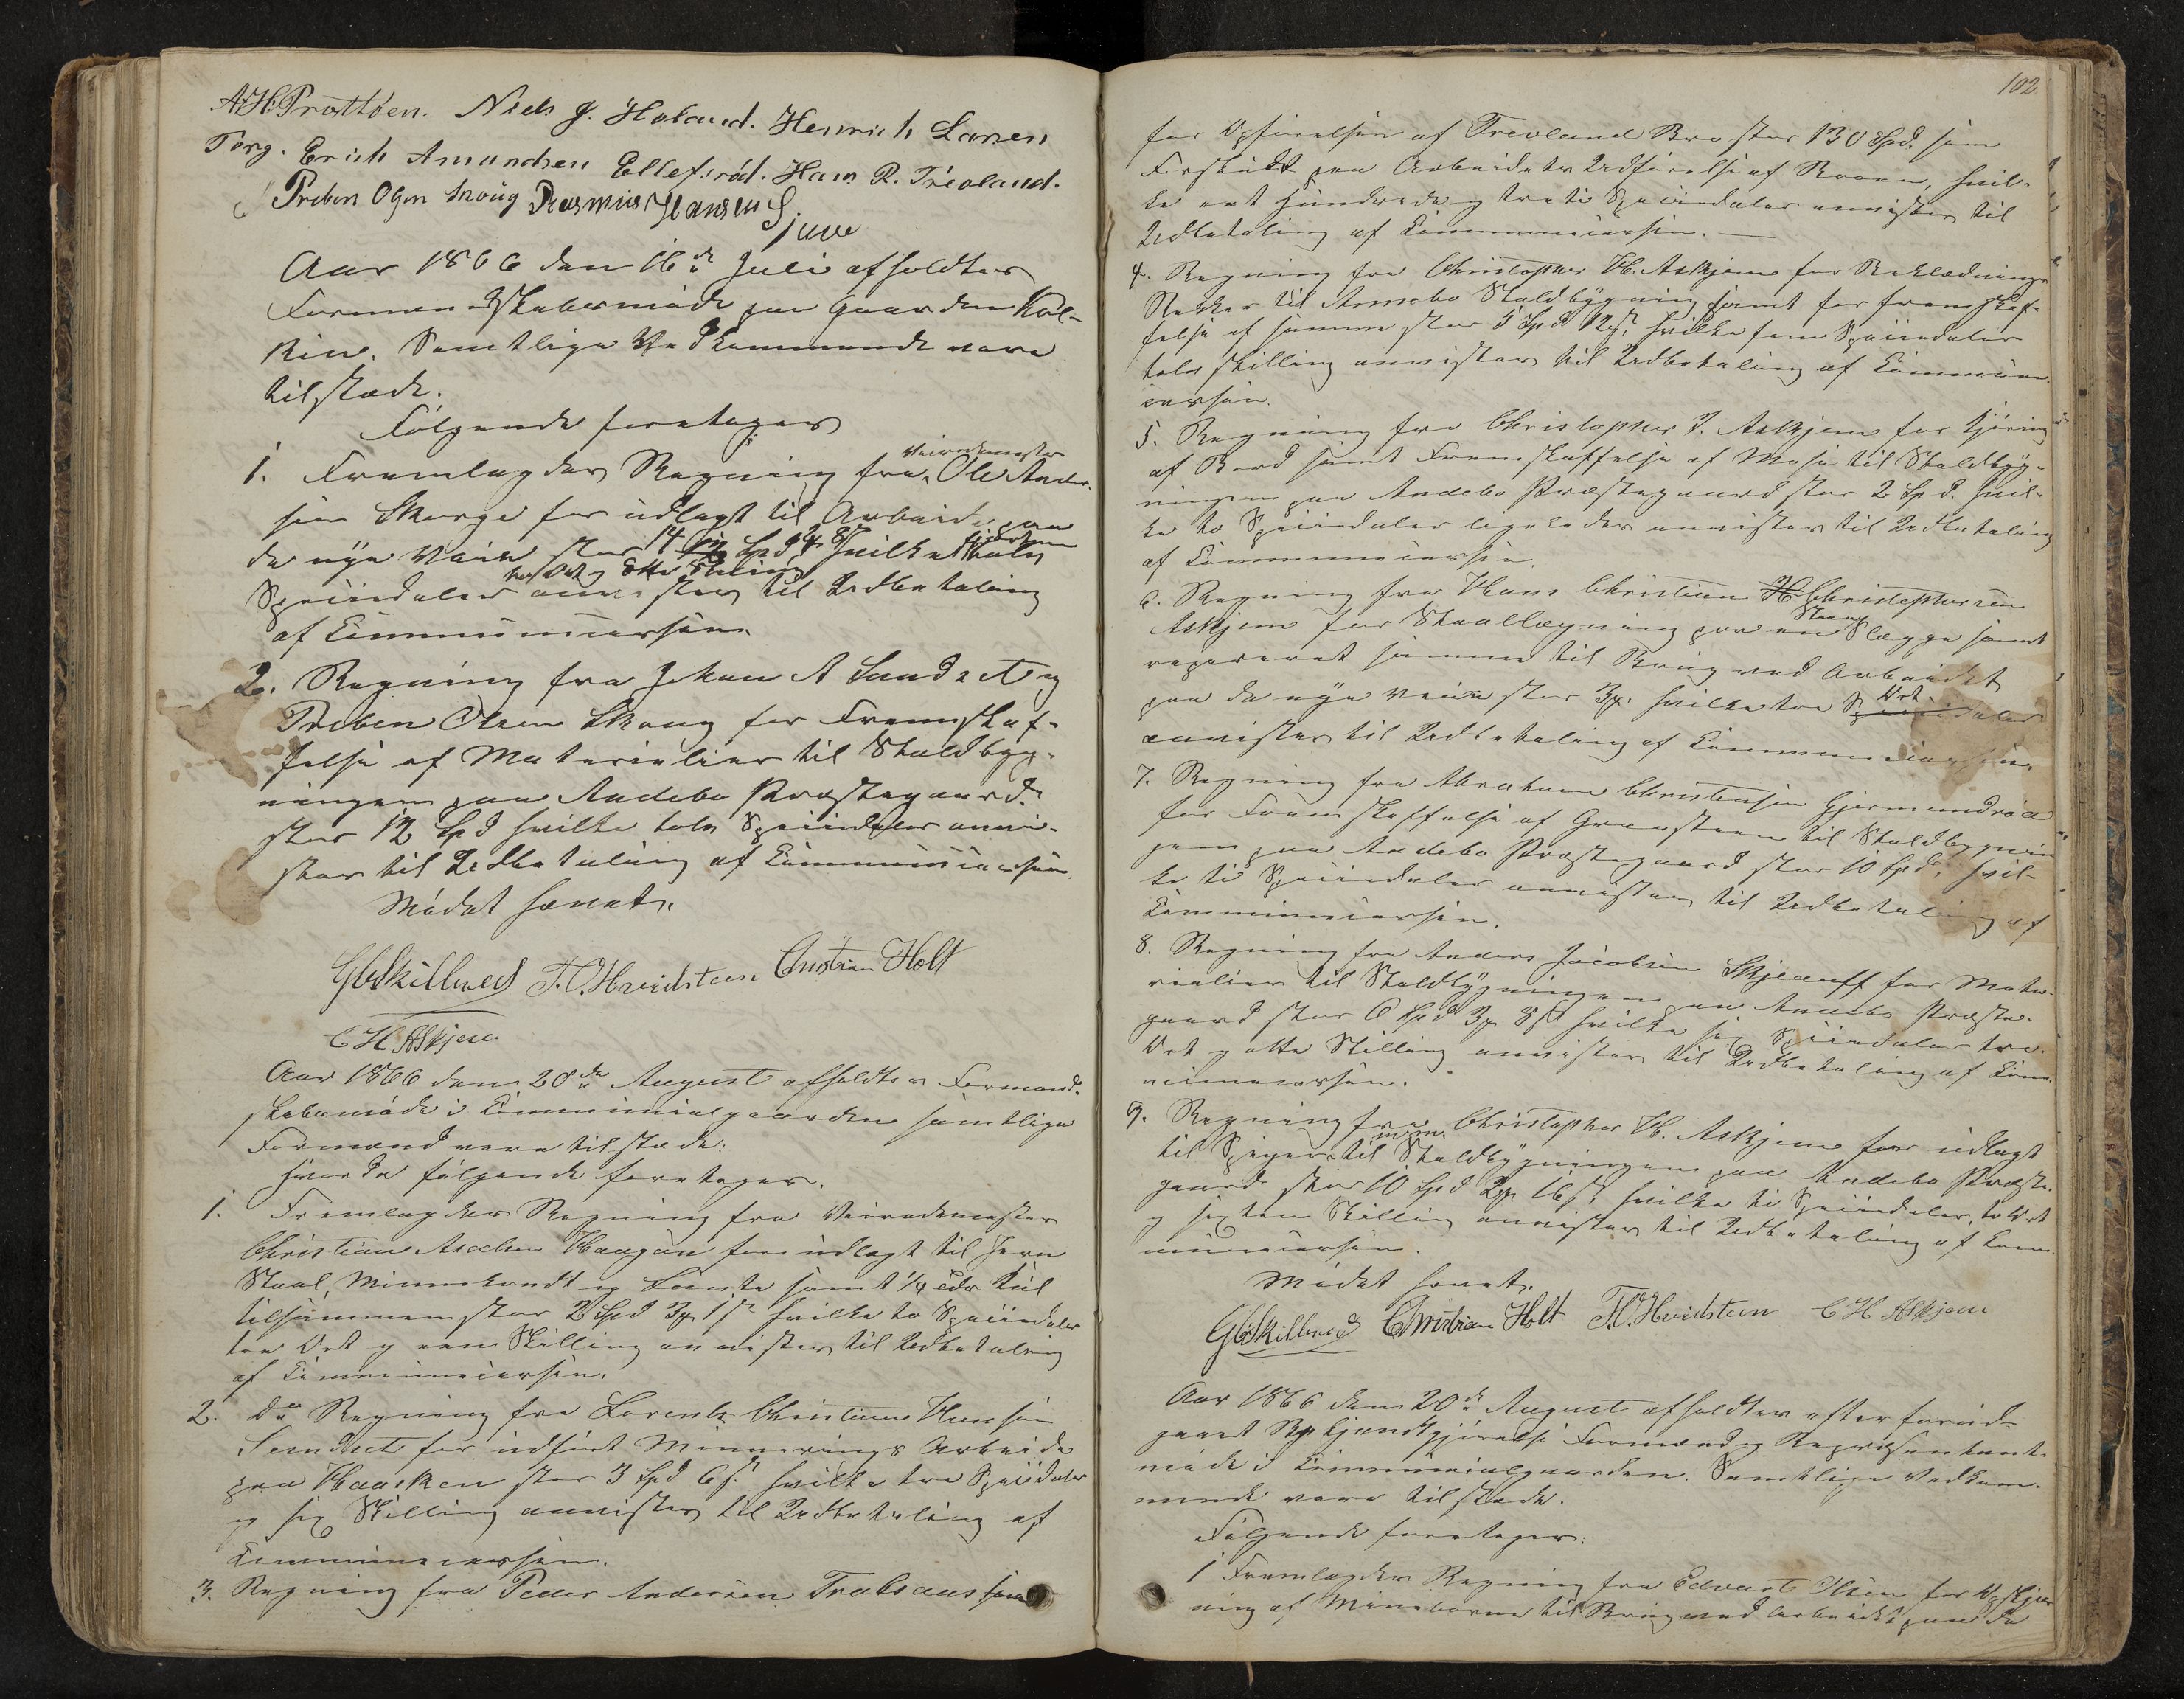 A. H. Prestbøen. Niels J. Holand. Henrich Larsen
Torg. Erich Amundsen Ellefsrød. Hans R. Trevland.
Preben Olsen Skoug Rasmus Hansen
Aar 1866 den 16de Juli afholdtes
Formandskabsmøde paa Gaarden Kol-
kin. Samtlige Vedkommende vare
tilstæde.
Følgende foretoges
1. Fremlagdes Regning fra Veirodemester Ole Ander-
sen Skorge for udlagt til Arbeide paa
de nye Veie stor 14 Spd hvilke fjorten
Spesiedaler anvistes til Udbetaling
af Communecassen.
2. Regning fra Johan A Sundset og
Preben Olsen Skoug for Fremskaf-
felse af Materialier til Staldbyg-
ningen paa Andebo Præstegaard
stor 12 Spd hvilke tolv Speciedaler anvi-
stes til Udbetaling af Communecassen.
Mødet hævet.
G C Skilbred T. O. Hvidsteen Christian Holt
C H Askjem
Aar 1866 den 20de August afholdtes Formand-
skabsmøde i Communialgaarden samtlige
Formænd vare tilstæde:
hvorda følgende foretoges.
1. Fremlagdes Regning fra Veirodemester
Christian Haugan for udlagt til Jern
Staal, Minnekrudt og Lunte samt 1/4 Kul
tilsammen stor 2 Spd 3 1 s hvilke to Speciedaler
tre Ort og een Skilling anvistes til Udbetaling
af Communecassen.
2. Do Regning fra Lorents Christian Hansen
Sundset for udført Minnerings Arbeide
paa stor 3 Spd 6 s. hvilke tre Speciedaler
og sex Skilling anvistes til Udbetaling af
Communecassen.
3. Regning fra Peder Andersen
102.
for Opførelsen af Trevland Bro stor 130 Spd. som
Forskudt paa Arbeidets Udførelse af Broen, hvil-
ke eet hundrede og treti Speciedaler anvistes til
Udbetaling af Communecassen.
4. Regning fra Christopher H. Askjem for Beklædnings
til Annebo Staldbygning samt for fremskaf-
felse af samme stor 5 Spd 12 s. hvilke fem Speciedaler
tolv Skilling anvistes til Udbetaling af Commune-
cassen.
5. Regning fra Christopher J. Askjem for Kjøring
af Bord samt Fremskaffelse af Mose til Staldbyg-
ningen paa Andebo Præstegaard stor 2 Spd. hvil-
ke to Speciedaler ligeledes anvistes til Udbetaling
af Communecassen.
6. Regning fra Hans Christian H Christophersen
Askjem for Staallægning paa en Steen Slægge samt
repareret samme til Brug ved Arbeidet
paa de nye Veie stor 3 hvilke tre Ort Speciedaler
anvistes til Udbetaling af Communecassen.
7. Regning fra Abraham Christensen Gjermundrød
for Fremskaffelse af Graasteen til Staldbygnin-
gen paa Andebo Præstegaard stor 10 Spd, hvil-
ke ti Speciedaler anvistes til Udbetaling af
Communecassen.
8. Regning fra Anders Jacobsen Skjeauff for Mate-
rialier til Staldbygningen paa Andebo Præste-
gaard stor 6 Spd 3 8 s hvilke sex Speciedaler tre
Ort og otte Skilling anvistes til Udbetaling af Com-
munecassen.
9. Regning fra Christopher H. Askjem for udlagt
til Spiger m.m. til Staldbygningen paa Andebo Præste-
gaard stor 10 Spd 2 16 s hvilke ti Speciedaler, to Ort
og sexten Skilling anvistes til Udbetaling af Com-
munecassen.
Mødet hævet.
G C Skilbred Christian Holt T. O. Hvidsteen C H Askjem
Aar 1866 den 20de August afholdtes efter forud-
gaaet Bekjendtgjørelse Formænd og Repræsentant-
møde i Communialgaarden. Samtlige Vedkom-
mende vare tilstede.
Følgende foretoges:
1 Fremlagdes Regning fra Edvart Olsen for Opskjær-
ning af Mineborne til Brug ved Arbeidet paa de